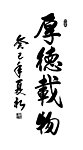 厚德載物
癸巳年夏